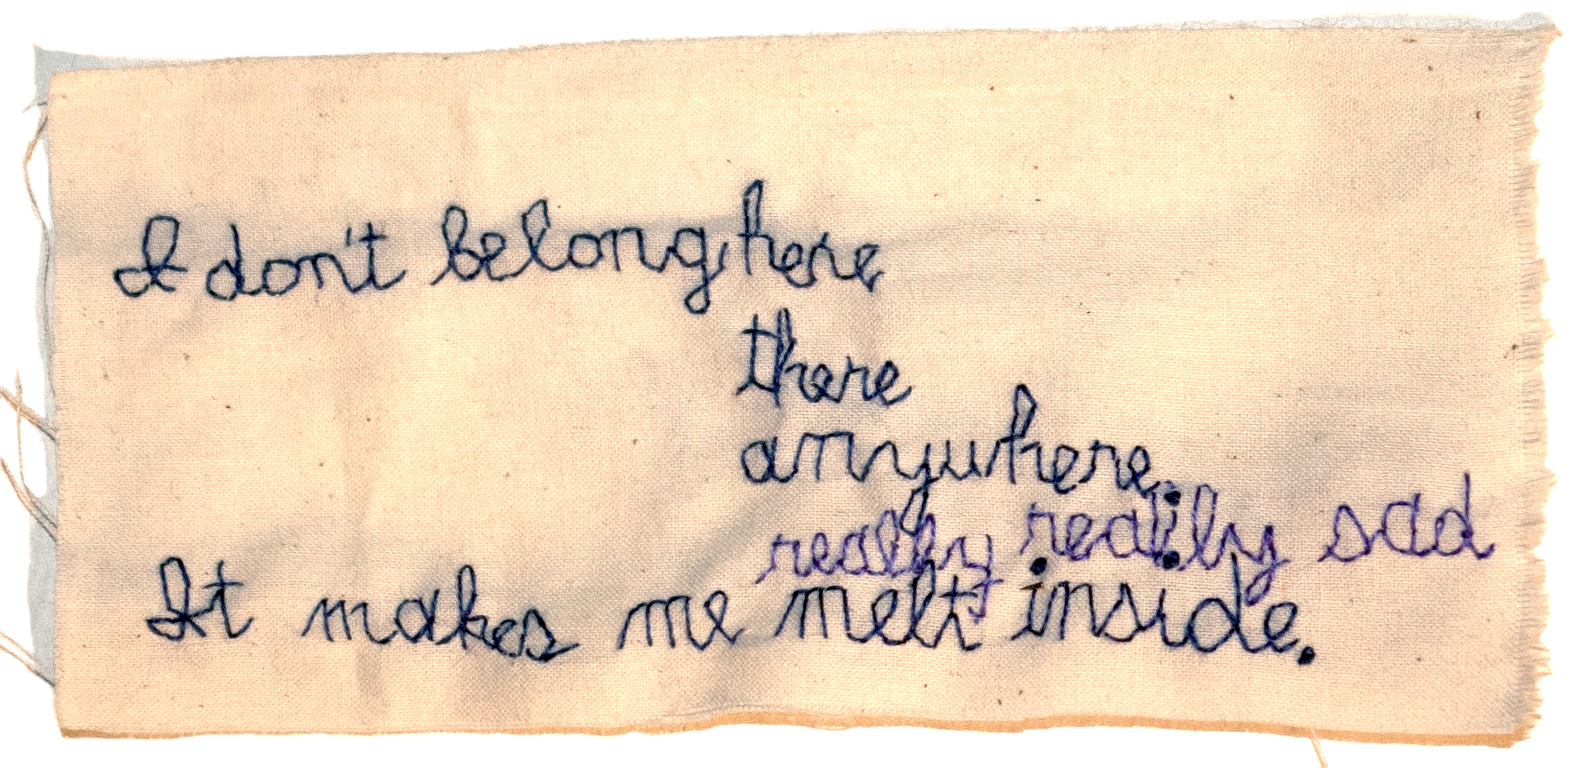 I don't belong here
there
anywhere.
really really sad
It makes me melt inside.